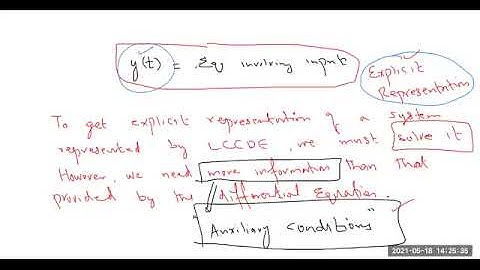 y(t) = Eq involving input
Explicit
Representation
To get explicit representation of a system
represented by LCCDE, we must solve it
However, we need more information than that
provided by the differential Equation.
"Auxiliary conditions"
2021-05-18 14:25:35